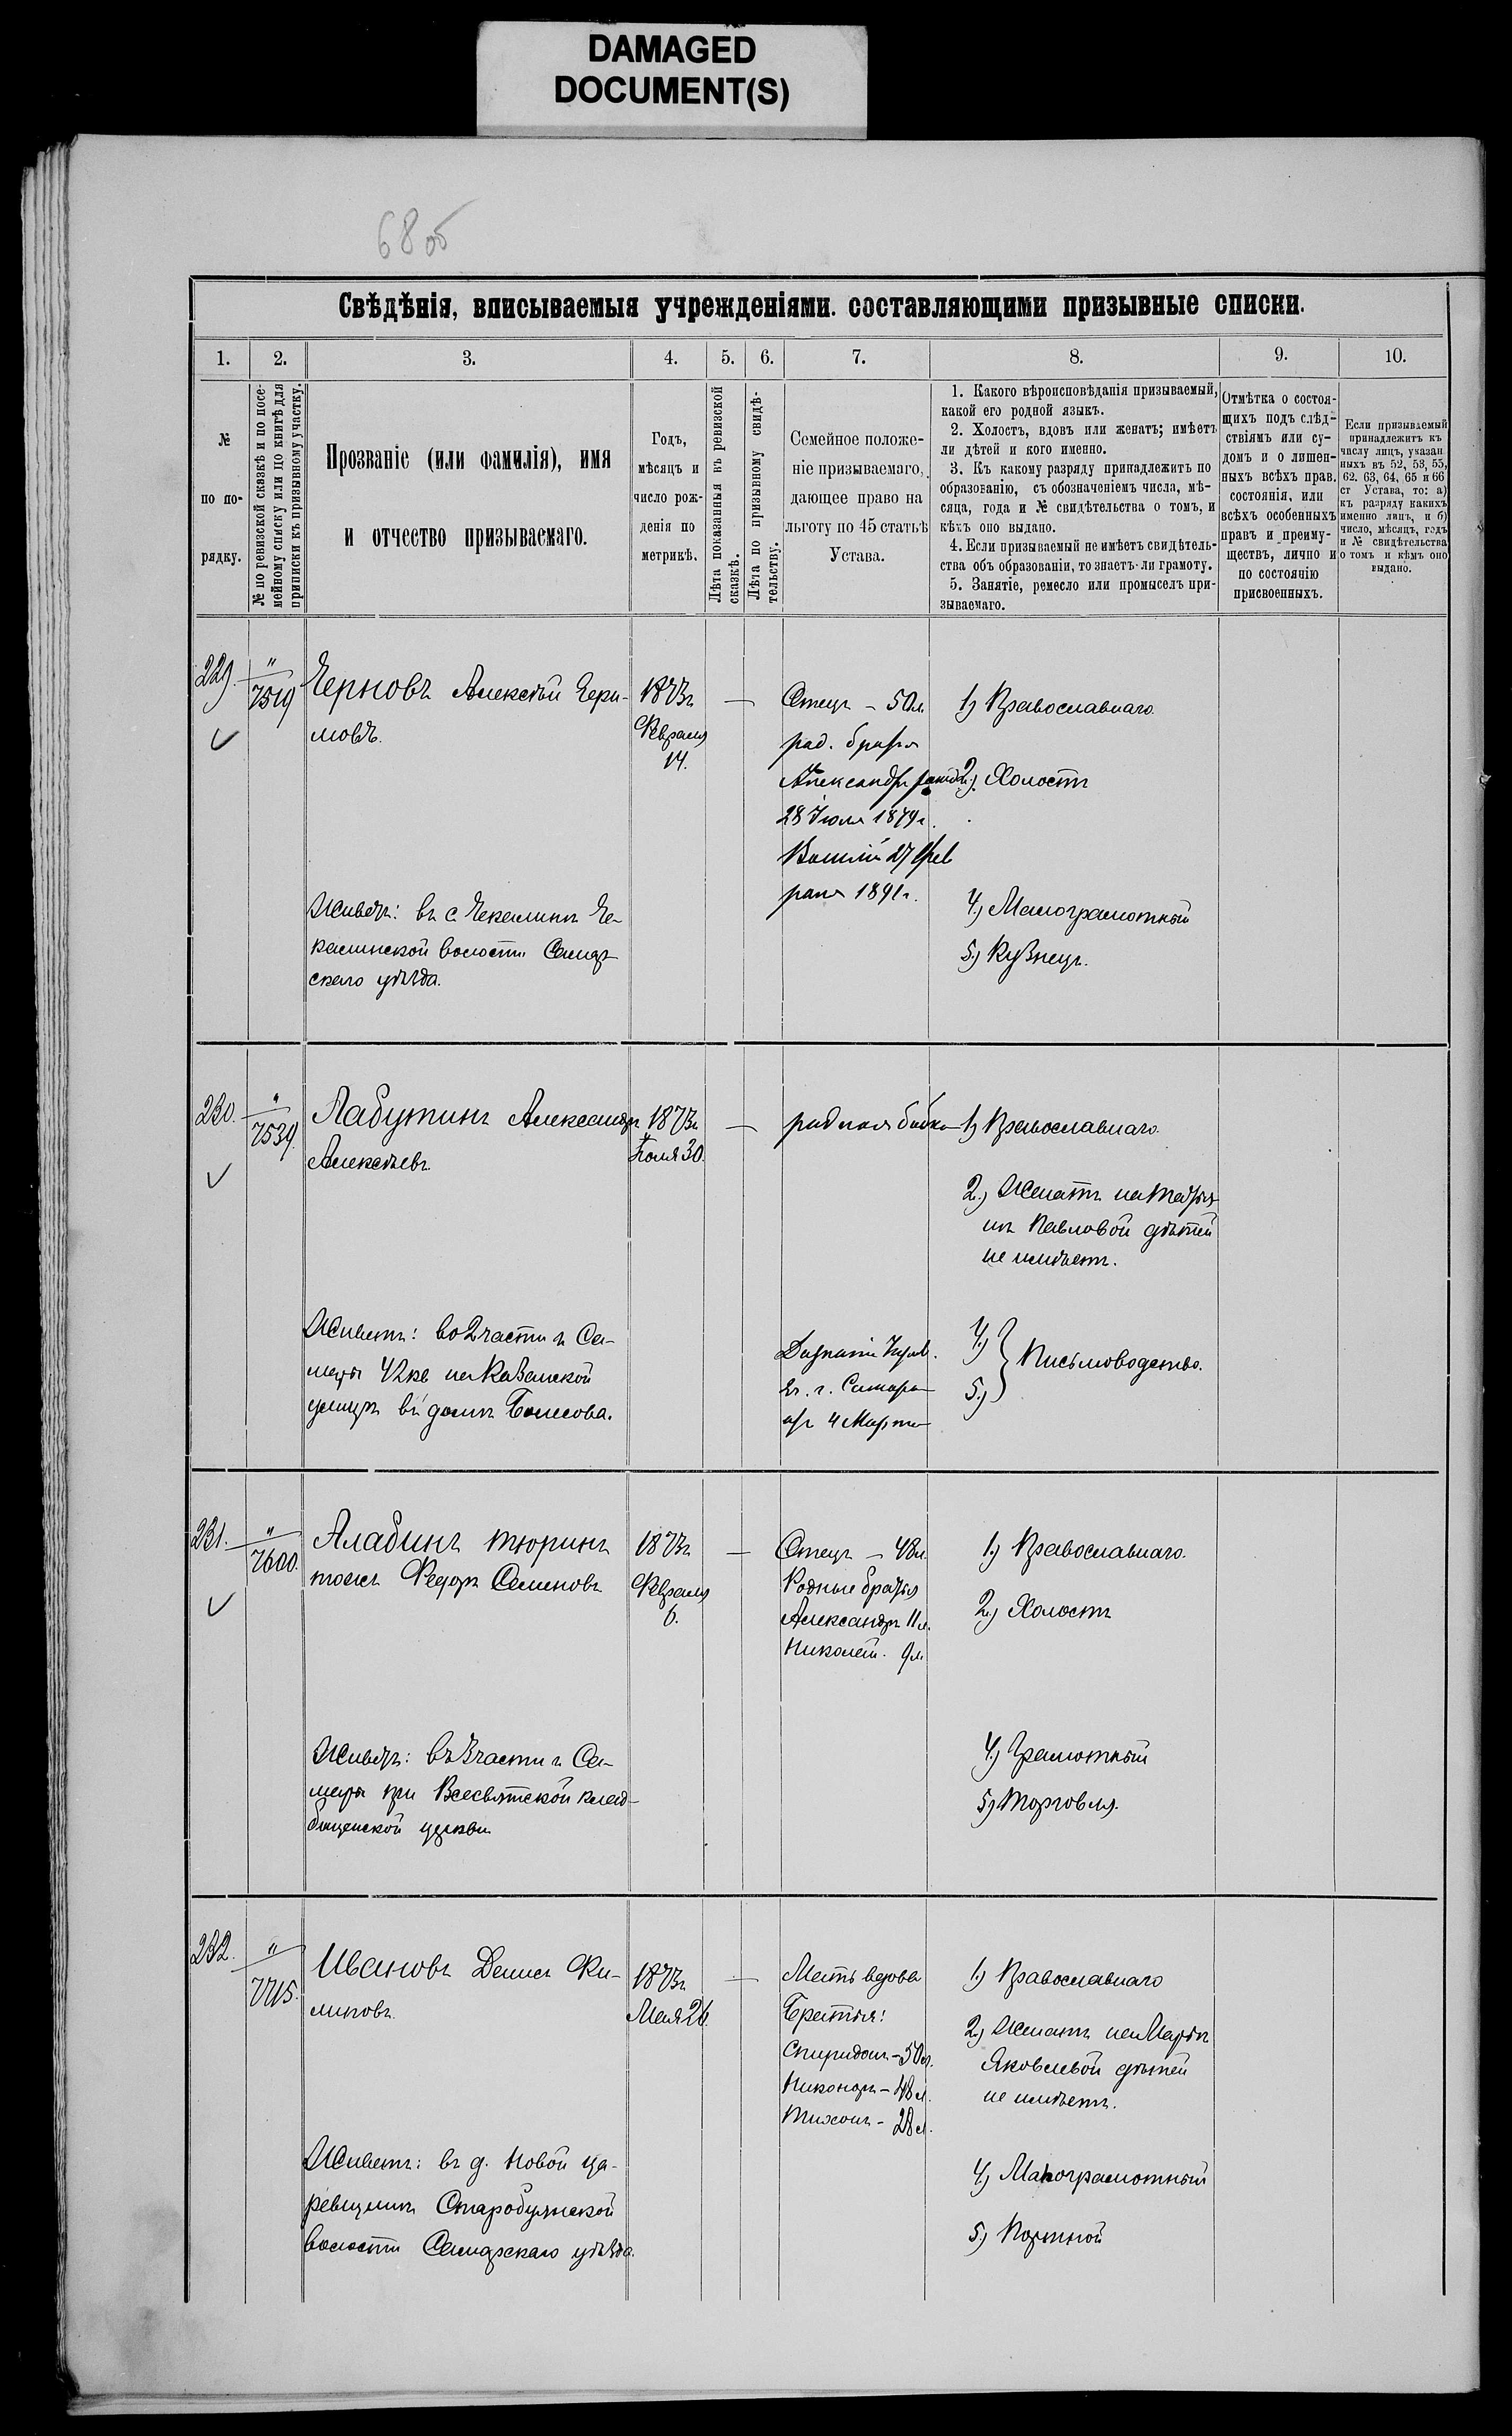 DAMAGED
DOCUMENT(S)
68 об
Свѣдѣнія, вписываемыя учрежденіями. составляющими призывные списки.
1. 2. 3. 4. 5. 6. 7. 8. 9. 10.
№
по по-
рядку.
№ по ревизской сказкѣ и по посе-
мейному списку или по книгѣ для
приписки къ призывному участку.
Прозваніе (или фамилія), имя
и отчество призываемаго.
Годъ,
мѣсяцъ и
число рож-
денія по
метрикѣ.
Лѣта показанныя въ ревизской
сказкѣ.
Лѣта по призывному свидѣ-
тельству.
Семейное положе-
ніе призываемаго,
дающее право на
льготу по 45 статьѣ
Устава.
1. Какого вѣроисповѣданія призываемый,
какой его родной языкъ.
2. Холостъ, вдовъ или женатъ; имѣетъ
ли дѣтей и кого именно.
3. Къ какому разряду принадлежитъ по
образованію, съ обозначеніемъ числа, мѣ-
сяца, года и № свидѣтельства о томъ, и
кѣмъ оно выдано.
4. Если призываемый не имѣетъ свидѣтель-
ства объ образованіи, то знаетъ-ли грамоту.
5. Занятіе, ремесло или промыселъ при-
зываемаго.
Отмѣтка о состоя-
щихъ подъ слѣд-
ствіямъ или су-
домъ и о лишен-
ныхъ всѣхъ прав.
состоянія, или
всѣхъ особенныхъ
правъ и преиму-
ществъ, лично и
по состоянію
присвоенныхъ.
Если призываемый
принадлежитъ къ
числу лицъ, указан
ныхъ въ 52, 53, 55,
62. 63, 64, 65 и 66
ст Устава, то: а)
къ разряду какихъ
именно лицъ, и б)
число, мѣсяцъ, годъ
и № свидѣтельства
о томъ и кѣмъ оно
выдано.
229.
"
7519
Черновъ Алексѣй
1873г
Февраля
14.
—
Отецъ - 50л.
род. братья
Александръ
28 Іюля 1879г.
Василій 27 Фев
раля 1891г.
1) Православнаго.
2.) Холостъ
4.) Малограмотный
5.) Кузнецъ.
Живетъ: въ с.
волости Самар-
скаго уѣзда.
230.
"
7534.
Лабутинъ Александръ
Алексѣевъ.
1873г
Іюля 30.
—
родная бабка
1) Православнаго.
2.) Женатъ на
Павловой дѣтей
не имѣетъ.
Живетъ: во 2 части г. Са-
мары на Казанской
улицѣ въ домѣ
г. Самара
4 Марта
4.)
5.)
Письмоводство.
231.
"
7600.
Аладинъ Тюринъ
тожъ Федоръ Семеновъ
1873г
Февраля
6.
—
Отецъ - 48л.
Родные братья
Александръ 11л.
Николай. 9л
1.) Православнаго.
2.) Холостъ
4.) Грамотный
5) Торговля.
Живетъ: въ 3 части г. Са-
мары при Всесвятской клад-
бищенской церкви
232.
"
7715.
Ивановъ Денисъ Фи-
липовъ.
1873г
Мая 26.
—
Мать вдова
Братья:
Спиридонъ - 50л.
Никоноръ - 48л.
Тихонъ - 28л.
1.) Православнаго
2.) Женатъ на Марьѣ
Яковлевой дѣтей
не имѣетъ.
4.) Малограмотный
5.) Портной
Живетъ: въ д. Новой ца-
ревщинѣ Старобуянской
волости Самарскаго уѣзда.